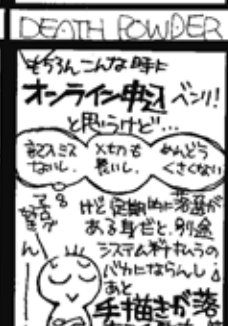 DEATH POWDER
もちろんこんな時に
オンライン申込 ベンリ!
と思うけど…
記入ミス
ないし。
〆切も
長いし。
めんどう
くさくない
けど定期的に落選が
ある身だと、別途
システム料払うの
バカにならんし
あと
手描きが落
ん